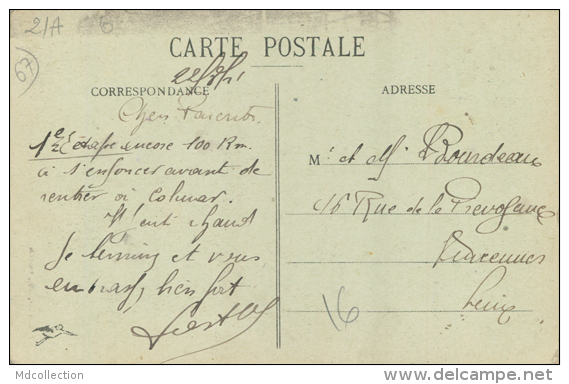 21/A 6
67
CARTE POSTALE
CORRESPONDANCE
ADRESSE
Chers Parents.
1e étape encore 100 Km.
à s'enfoncer avant de
rentrer à Colmar.
chaud
Je termine et vous
embrasse bien fort
Mr et M Bourdeau
16 Rue de la Prevoyance
Vincennes
Seine
16
Mdcollection
www.delcampe.net